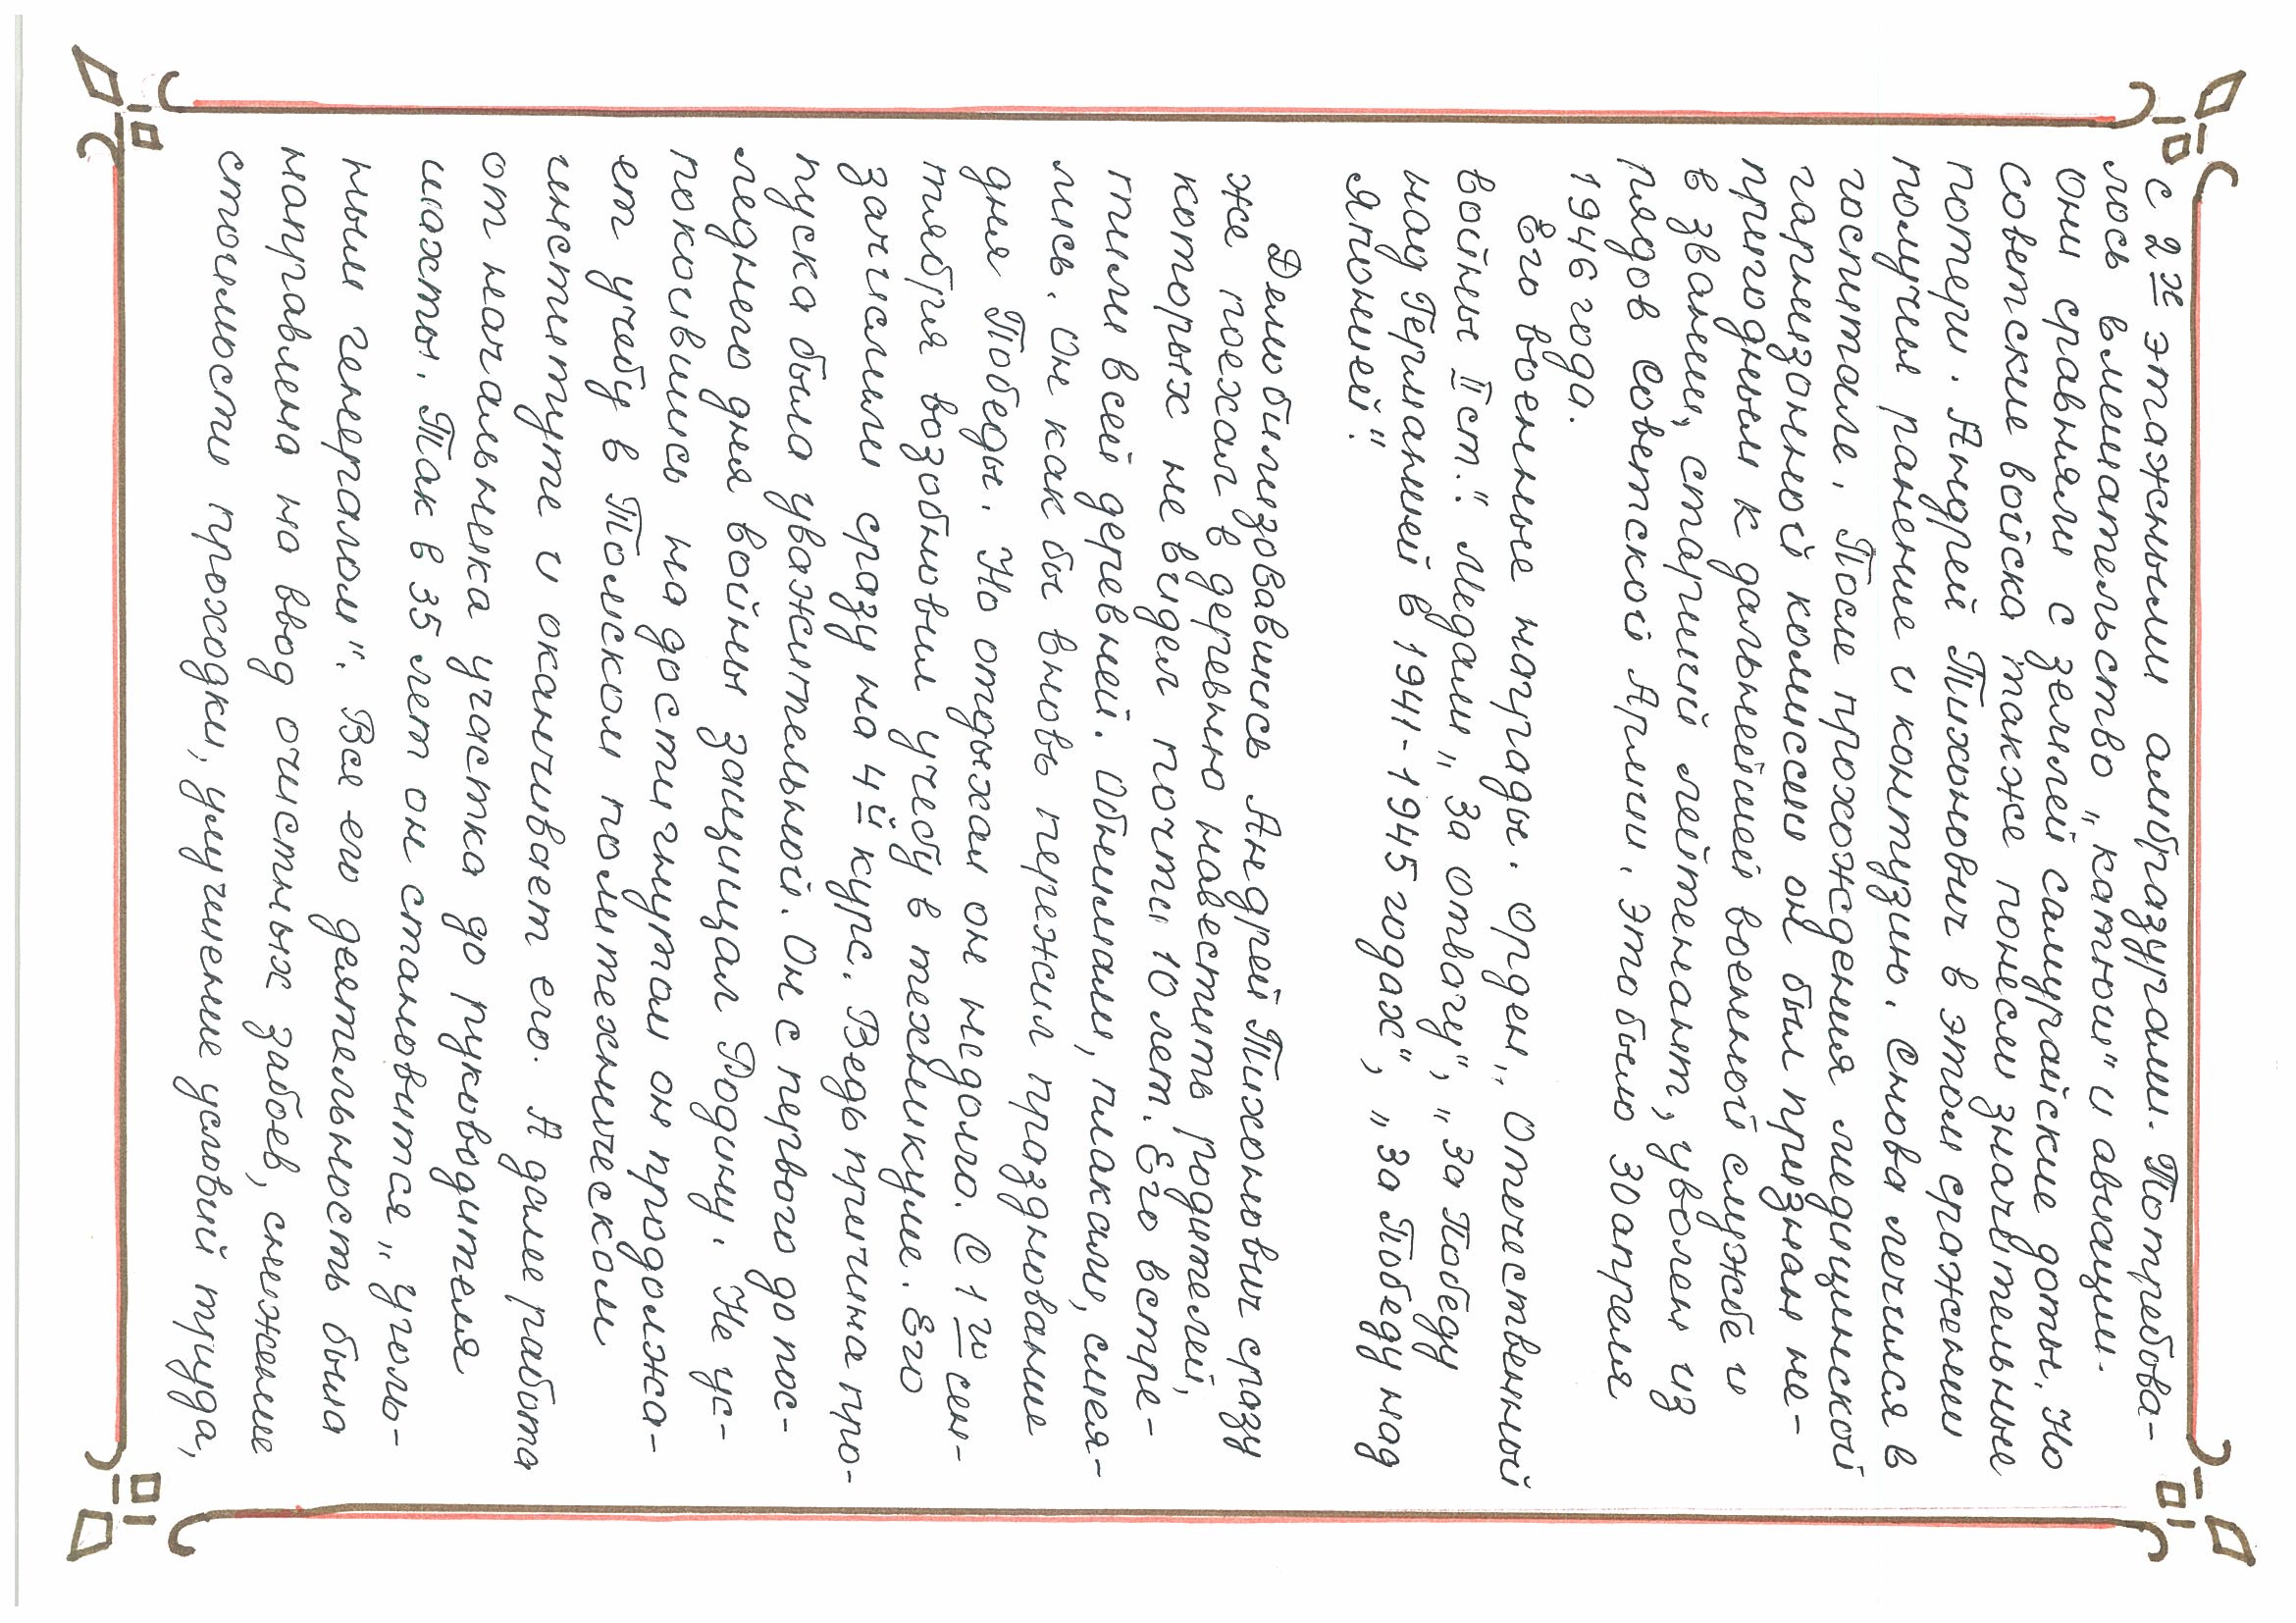 с 2х этажными амбразурами. Потребова-
лось вмешательство „катюш" и авиации.
Они сравняли с землей самурайские доты. Но
советские войска также понесли значительные
потери. Андрей Тихонович в этом сражении
получил ранение и контузию. Снова лечился в
госпитале. После прохождения медицинской
гарнизонной комиссии он был признан не-
пригодным к дальнейшей военной службе и
в звании, старший лейтенант, уволен из
рядов Советской Армии. Это было 30 апреля
1946 года.
Его военные награды. Орден „Отечественный
войны II ст." Медали „За отвагу", „За Победу
над Германией в 1941-1945 годах", „За Победу над
Японией".
Демобилизовавшись Андрей Тихонович сразу
же поехал в деревню навестить родителей,
которых не видел почти 10 лет. Его встре-
тили всей деревней. Обнимали, плакали, смея-
лись. Он как бы вновь пережил празднование
дня Победы. Но отдыхал он недолго. С 1го сен-
тября возобновил учебу в техникуме. Его
зачислили сразу на 4й курс. Ведь причина про-
пуска была уважительной. Он с первого до пос-
леднего дня войны защищал Родину. Не ус-
покоившись на достигнутом он продолжа-
ет учебу в Томском политехническом
институте и оканчивает его. А далее работа
от начальника участка до руководителя
шахты. Так в 35 лет он становится „уголь-
ным генералом". Вся его деятельность была
направлена на ввод очистных забоев, снижение
стоимости проходки, улучшение условий труда,